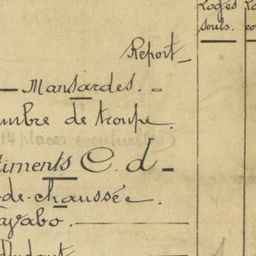 Logés
seuls.
Report
— Mansardes. —
mbre de troupe.
timents C. d
de-chaussée.